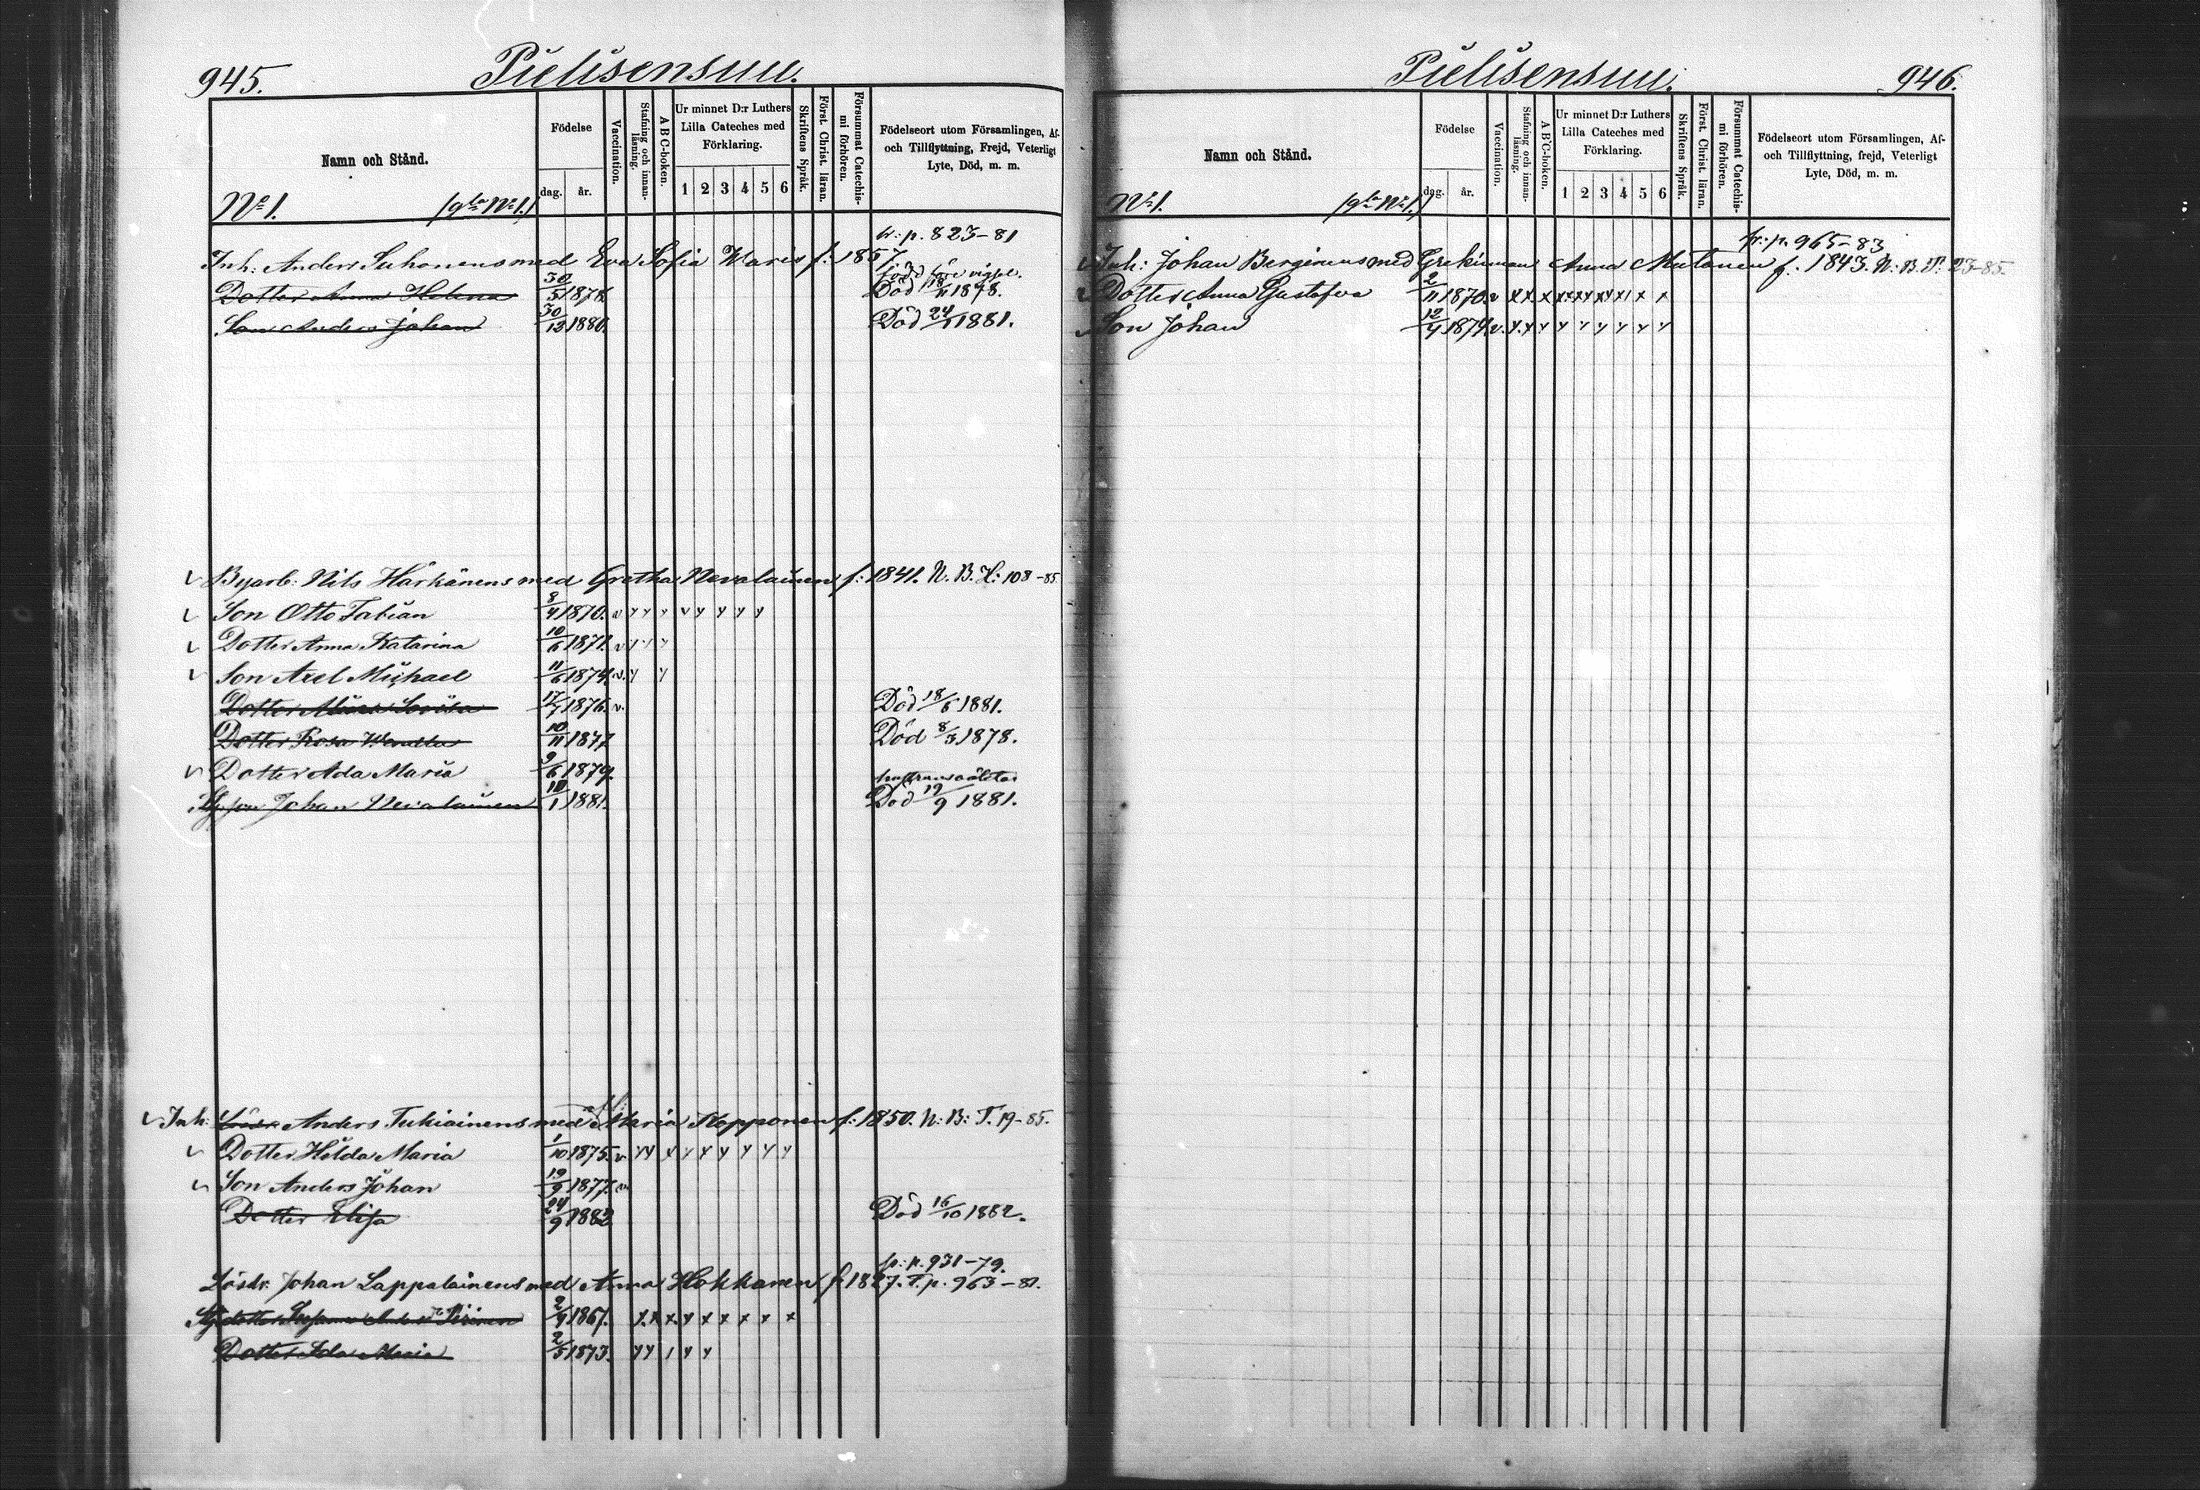 945. Pielisensuu.
Namn och Stånd.
Födelse
dag. år.
Vaccination.
Stafning och innanläsning.
A B C-boken.
Ur minnet D:r Luthers Lilla Cateches med Förklaring.
1 2 3 4 5 6
Skriftens Språk.
Först. Christ. läran.
Försummat Catechismi förhören.
Födelseort utom Församlingen, Af- och Tillflyttning, Frejd, Veterligt Lyte, Död, m. m.
No 1. No 1.)
fr: p. 823-81
Inh: Anders Suhonens med Eva Sofia Waris f: 1857.
född före vigsel.
Dotter Anna Helena 30/5 1878. Död 1878.
Son Anders Johan 30/12 1880. Död 24/1 1881.
Byarb: Nils Härkänens med Gretha Nevalainen f: 1841. N. B. H: 108-85
Son Otto Fabian 8/4 1870. v
Dotter Anna Katarina 10/5 1871. v
Son Axel Michael 11/6 1874. v.
Dotter Lovisa 17/7 1876. v. Död 18/5 1881.
Dotter Rosa Wendla 10/11 1877 Död 8/3 1878.
Dotter Ada Maria 9/6 1879.
Johan Nevalainen 10/1 1881. Död 19/9 1881.
Inh: Anders Tukiainens med Maria Kopponen f: 1850. N: B: T. 19-85.
Dotter Hilda Maria 1/10 1875. v
Son Anders Johan 19/9 1877. v
Dotter Elisa 24/9 1882 Död 16/10 1882.
fr: p. 931-79.
Lösdr. Johan Lappalainens med Anna Hokkanen f: 1827. T. p. 963-81.
2/9 1867.
Dotter Ida Maria 2/5 1873.
Pielisensuu. 946.
Namn och Stånd.
Födelse
dag. år.
Vaccination.
Stafning och innanläsning.
A B C-boken.
Ur minnet D:r Luthers Lilla Cateches med Förklaring.
1 2 3 4 5 6
Skriftens Språk.
Först. Christ. läran.
Försummat Catechismi förhören.
Födelseort utom Församlingen, Af- och Tillflyttning, frejd, Veterligt Lyte, Död, m. m.
No 1. No 1.)
fr: p. 965-83
Inh: Johan Berginens med Grekinnan Anna Mutanen f. 1843. N: B. T: 23-85.
Dotter Anna Gustafva 2/11 1870. v
Son Johan 12/4 1874. v.